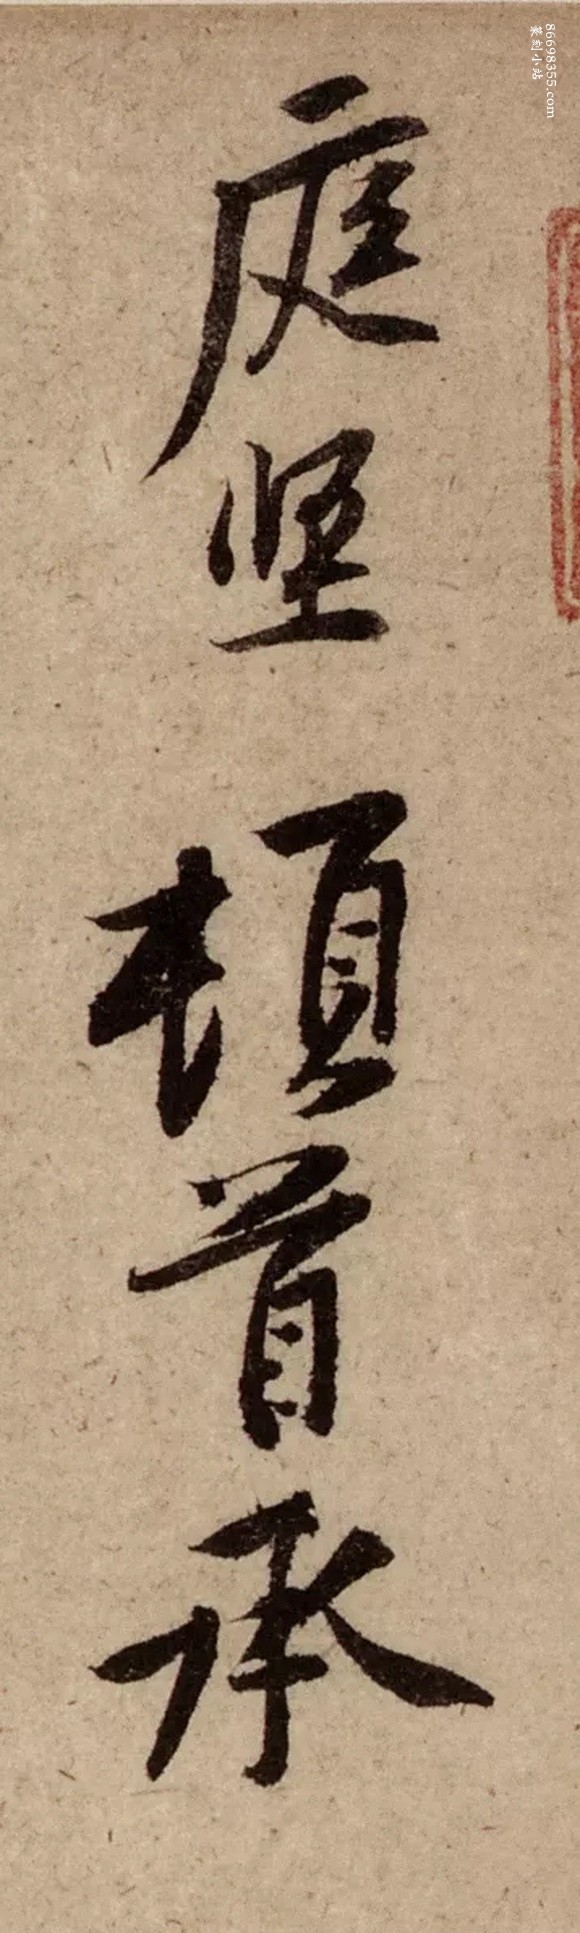 86698355.com
篆刻小站
庭坚頓首承